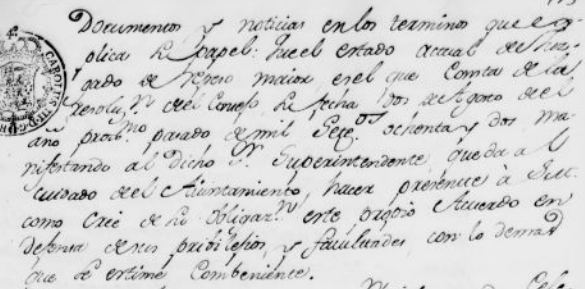 Documentos y noticias en los terminos que ex-
plica el papel: que el estado actual del Juz-
gado de Repeso maior, es el que Consta de la
resoluz.n del Consejo de fecha dos de Agosto de el
año prox.mo pasado de mil Setec.os ochenta y dos ma-
nifestando al dicho S.r Superintendente queda al
cuidado del Aiuntamiento, hacer presente à Su
como Cree de su obligaz.n este propio Acuerdo en
defensa de sus pribilejios, y facultades con lo demas
que se estime Combeniente.